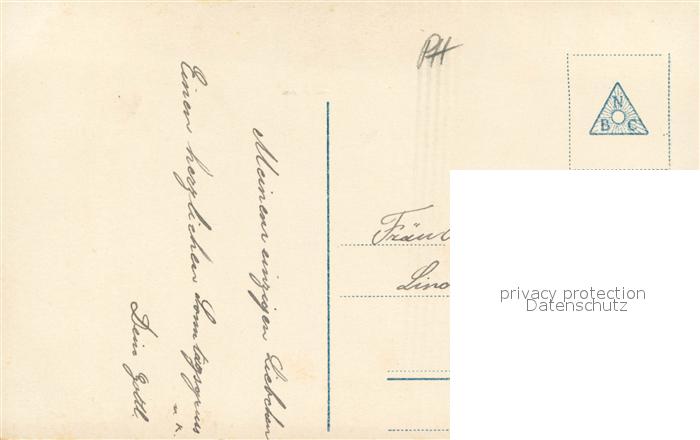 PH
N
B C
Meinem einzigen Liebchen
Einen herzlichen Sonntagsgruss
u. K.
Dein
Fräul
Lina
privacy protection
Datenschutz